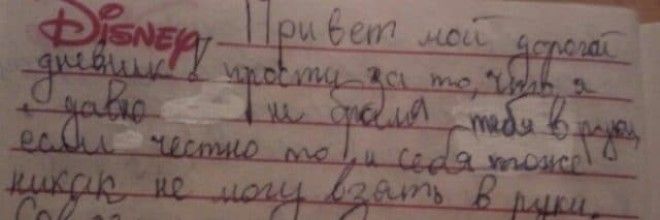 DISNEY Привет мой дорогой
дневник! прости за то, что я
давно не брала тебя в руки,
если честно то и себя тоже
никак не могу взять в руки.